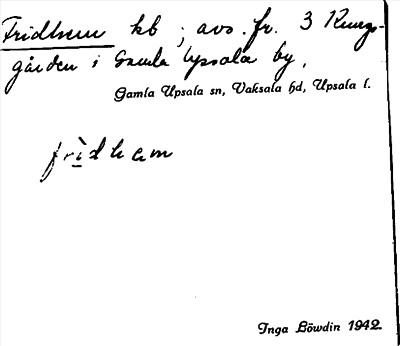 Fridhem kb ; avs. fr. 3 Kungs-
gården i Gamla Upsala by.
Gamla Upsala sn, Vaksala hd, Upsala l.
frìdhem
Inga Löwdin 1942.